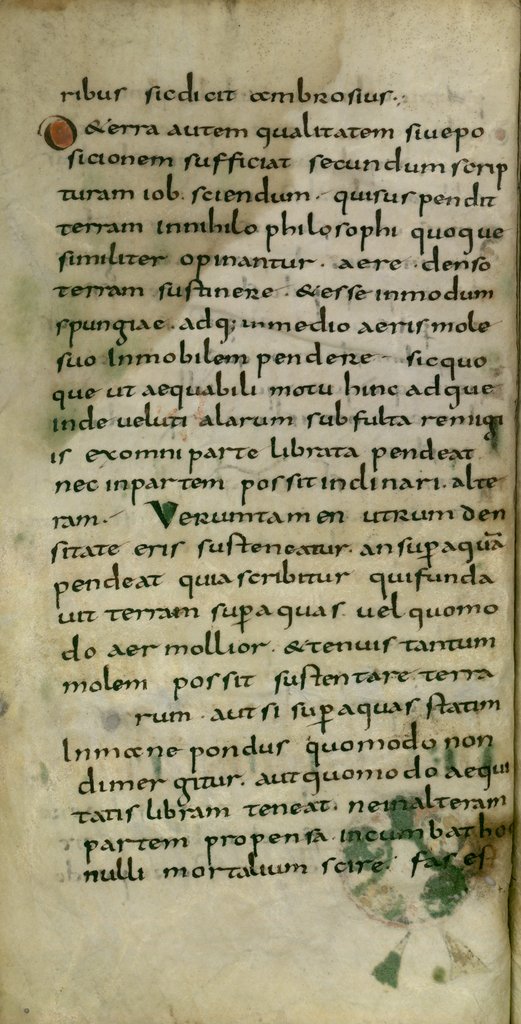 ribus sicdicit ambrosius.
De terra autem qualitatem siuepo
sicionem sufficiat secundum scrip
turam iob. sciendum. quisuspendit
terram innihilo philosophi quoque
similiter opinantur. aere denso
terram sustinere. &esse inmodum
spungiae. adq; inmedio aeris mole
suo Inmobilem pendere. sicquo
que ut aequabili motu hinc adque
inde veluti alarum subfulta remigi
is exomni parte librata pendeat
nec inpartem possit inclinari. alte
ram. Veruntamen utrum den
sitate eris susteneatur. ansup aquā
pendeat quia scribitur quifunda
uit terram sup aquas. uel quomo
do aer mollior. &tenuis tantum
molem possit sustentare terra
rum. aut si sup aquas statim
Inmane pondus quomodo non
dimergitur. aut quomodo aequi
tatis libram teneat. ne inalteram
partem propensa incumbat ho
nulli mortalium scire. fas es